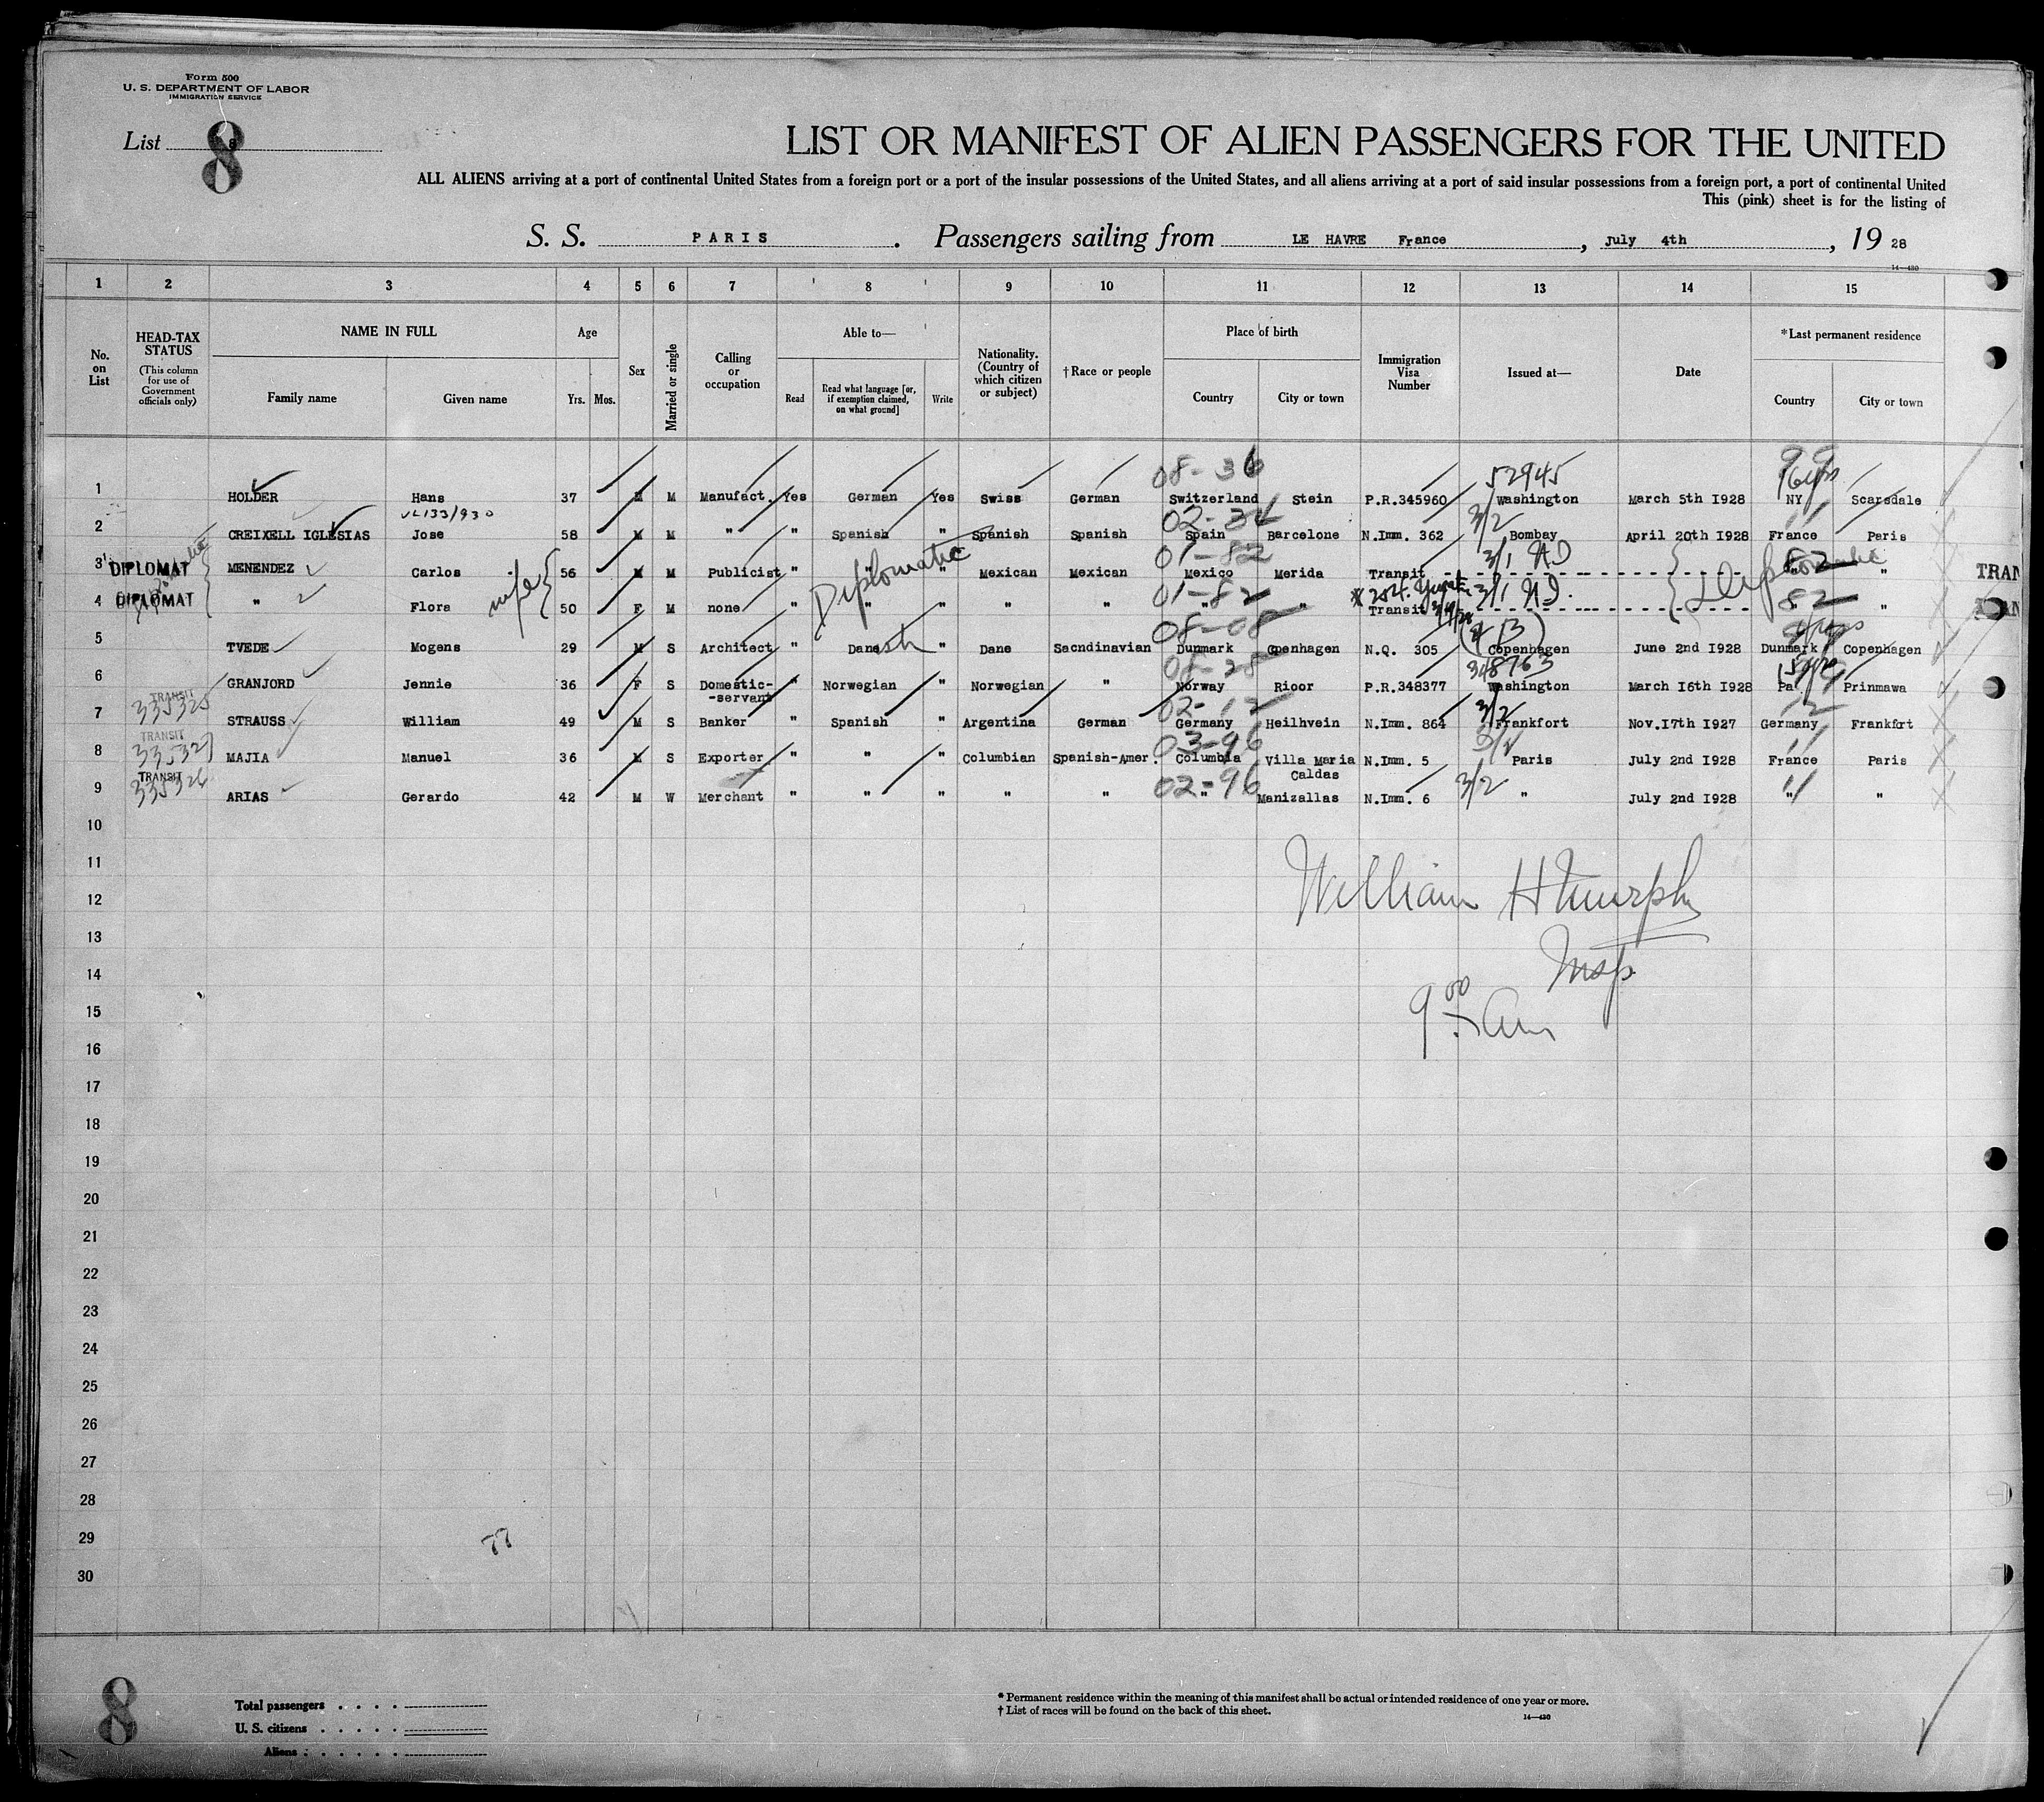 Form 500
U. S. DEPARTMENT OF LABOR
IMMIGRATION SERVICE
List 8
LIST OR MANIFEST OF ALIEN PASSENGERS FOR THE UNITED
ALL ALIENS arriving at a port of continental United States from a foreign port or a port of the insular possessions of the United States, and all aliens arriving at a port of said insular possessions from a foreign port, a port of continental United
This (pink) sheet is for the listing of
S. S. PARIS. Passengers sailing from LE HAVRE France, July 4th, 19 28
14—430
1 2 3 4 5 6 7 8 9 10 11 12 13 14 15
No. on List
HEAD-TAX STATUS
(This column for use of Government officials only)
NAME IN FULL
Family name Given name
Age
Yrs. Mos.
Sex
Married or single
Calling or occupation
Able to—
Read
Read what language [or, if exemption claimed, on what ground]
Write
Nationality. (Country of which citizen or subject)
†Race or people
Place of birth
Country City or town
Immigration Visa Number
Issued at—
Date
*Last permanent residence
Country City or town
08-36 52945
1 HOLDER Hans 37 M M Manufact. Yes German Yes Swiss German Switzerland Stein P.R.345960 Washington March 5th 1928 NY Scarsdale
VL133/930 02- 3/2
2 CREIXELL IGLESIAS Jose 58 M M " " Spanish " Spanish Spanish Spain Barcelone N.Imm. 362 Bombay April 20th 1928 France Paris
Diplomatic 01-82 3/1 Diplomatic 82
3 DIPLOMAT MENENDEZ Carlos 56 M M Publicist " " " Mexican Mexican Mexico Merida Transit " " TRAN
wife 01-82 3/1 82
4 DIPLOMAT " Flora 50 F M none " " " " " " " Transit " "
08-08
5 TVEDE Mogens 29 M S Architect " Danish " Dane Sacndinavian Dunmark Copenhagen N.Q. 305 Copenhagen June 2nd 1928 Dunmark Copenhagen
08-28 348763
6 GRANJORD Jennie 36 F S Domestic-servant " Norwegian " Norwegian " Norway Rioor P.R.348377 Washington March 16th 1928 Pa. Prinmawa
TRANSIT 335325 02-12 3/2 12
7 STRAUSS William 49 M S Banker " Spanish " Argentina German Germany Heilhvein N.Imm. 864 Frankfort Nov.17th 1927 Germany Frankfort
TRANSIT 335327 03-96 3/2 11
8 MAJIA Manuel 36 M S Exporter " " " Columbian Spanish-Amer. Columbia Villa Maria Caldas N.Imm. 5 Paris July 2nd 1928 France Paris
TRANSIT 335326 02-96 3/2 11
9 ARIAS Gerardo 42 M W Merchant " " " " " " Manizallas N.Imm. 6 " July 2nd 1928 " "
10
11
12 William H Murphy
13
14 Insp.
15 9 00 Am
16
17
18
19
20
21
22
23
24
25
26
27
28
29 77
30
8
Total passengers
U. S. citizens
Aliens
* Permanent residence within the meaning of this manifest shall be actual or intended residence of one year or more.
† List of races will be found on the back of this sheet.
14—430